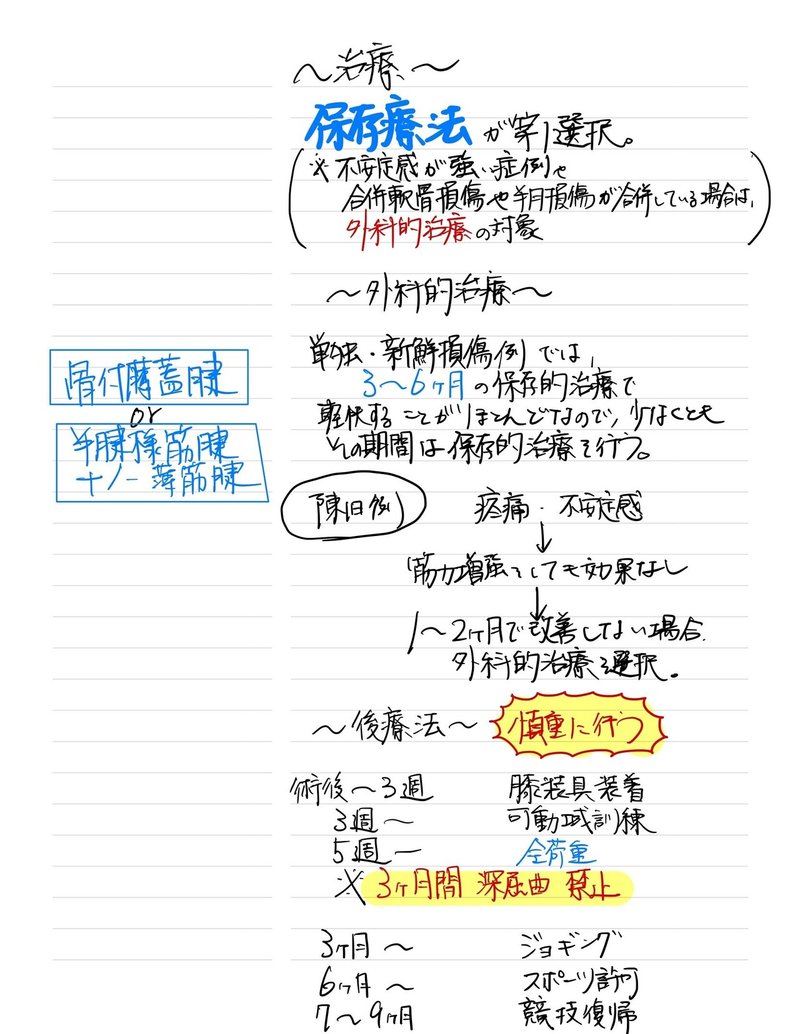 ～治療～
保存療法が第1選択。
※不安定感が強い症例や
合併軟骨損傷や半月損傷が合併している場合は、
外科的治療の対象
～外科的治療～
単独・新鮮損傷例では、
3～6ヶ月の保存的治療で
軽快することがほとんどなので、少なくとも
その期間は保存的治療を行う。
骨付膝蓋腱
or
半腱様筋腱
+/- 薄筋腱
陳旧例
疼痛・不安定感
↓
筋力増強しても効果なし
↓
1～2ヶ月で改善しない場合、
外科的治療を選択。
～後療法～ 慎重に行う
術後～3週 膝装具装着
3週～ 可動域訓練
5週～ 全荷重
※3ヶ月間 深屈曲 禁止
3ヶ月～ ジョギング
6ヶ月～ スポーツ許可
7～9ヶ月 競技復帰